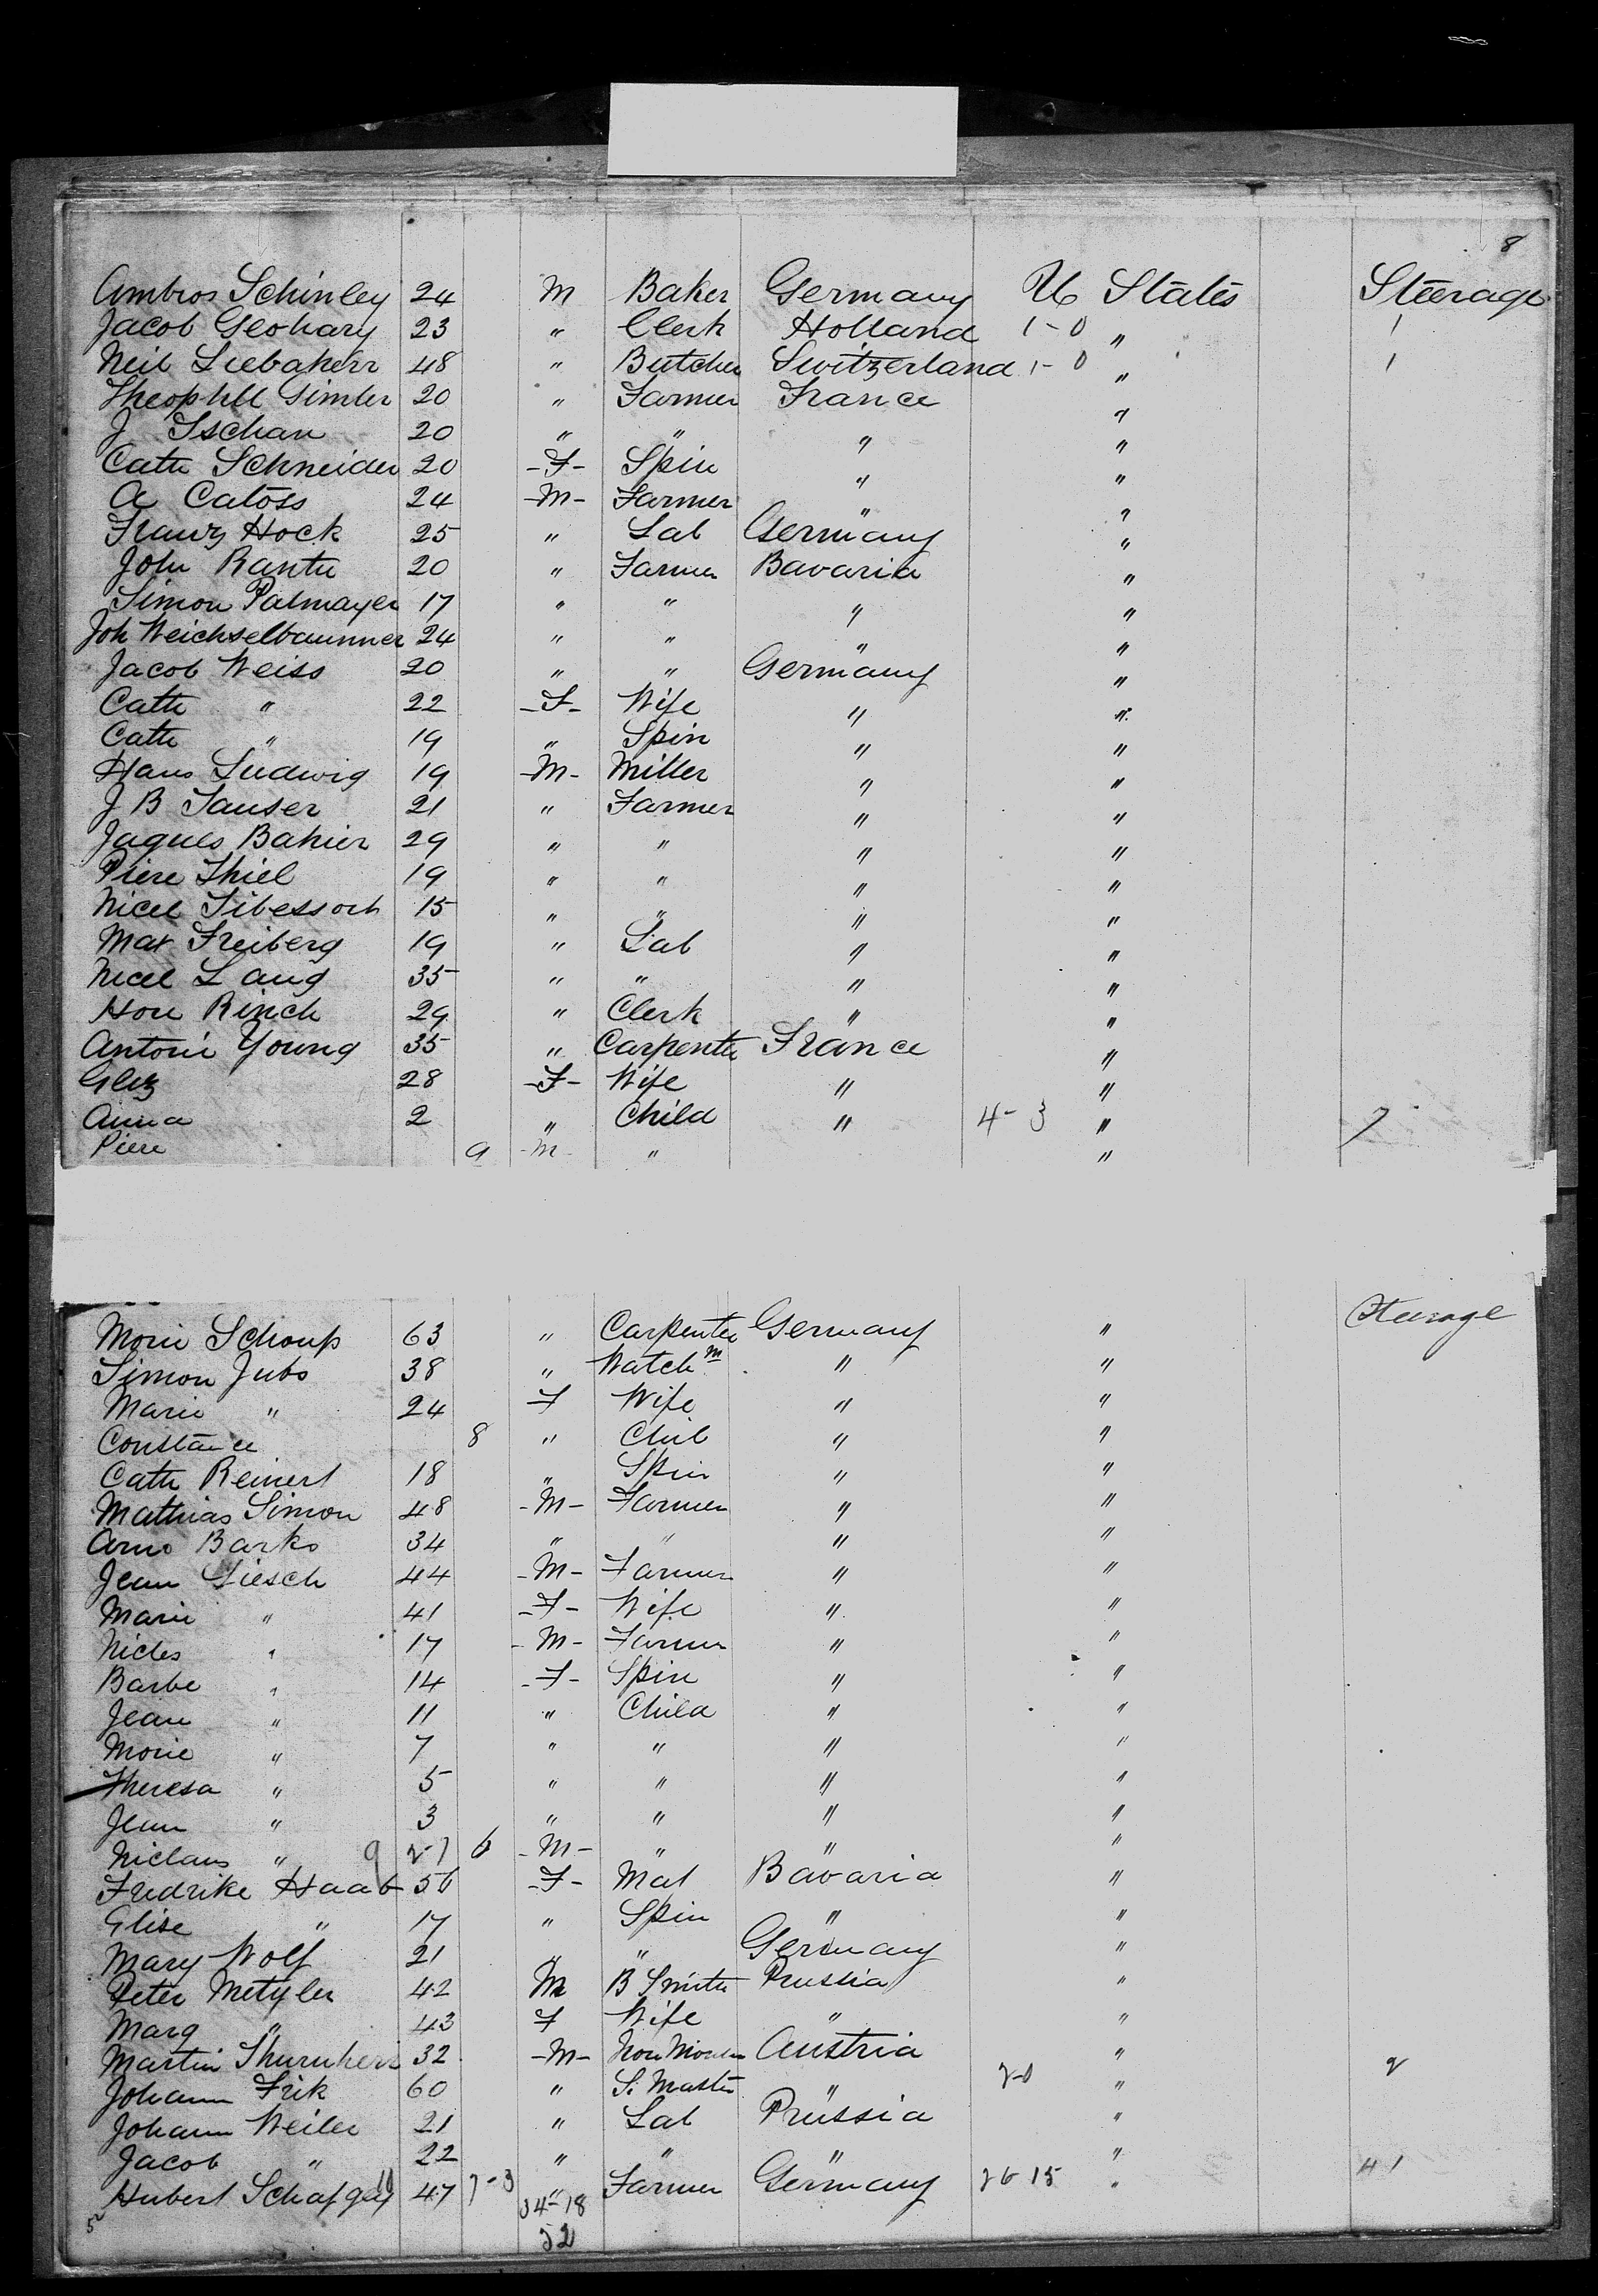 8
Ambros Schinley 24 M Baker Germany U States Steerage
Jacob Geohary 23 " Clerk Holland 1-0 " 1
Neil Liebakerr 48 " Butcher Switzerland 1-0 " 1
Theophill Gimler 20 " Farmer France "
J Tschan 20 " " " "
Cath Schneider 20 -F- Spin " "
A Catoss 24 -M- Farmer " "
Franz Hock 25 " Lab Germany "
John Rantu 20 " Farmer Bavaria "
Simon Palmayer 17 " " " "
Joh Weichselbaummer 24 " " " "
Jacob Weiss 20 " " Germany "
Cath " 22 -F- Wife " "
Cath " 19 " Spin " "
Hans Ludwig 19 -M- Miller " "
J B Tauser 21 " Farmer " "
Jaques Bahier 29 " " " "
Piere Thiel 19 " " " "
Nicel Tibessort 15 " " " "
Max Freiberg 19 " Lab " "
Nicel Lang 35 " " " "
Hon Rinch 29 " Clerk " "
Antoni Young 35 " Carpenter France "
Eliz 28 -F- Wife " "
Anna 2 " Child " 4-3 " 7
Piere 9 -M- " "
Steerage
Morie Schoup 63 " Carpenter Germany "
Simon Jubs 38 " Watch m " "
Marie " 24 F Wife " "
Constance 8 " Chil " "
Cath Reinert 18 " Spin " "
Mathias Simon 48 -M- Farmer " "
Arno Barks 34 " " " "
Jean Giesch 44 -M- Farmer " "
Marie " 41 -F- Wife " "
Nicles " 17 -M- Farmer " "
Barbe " 14 -F- Spin " "
Jean " 11 " Child " "
Morie " 7 " " " "
Theresa " 5 " " " "
Jean " 3 " " " "
Niclaus " 6 -M- " " "
Fredrike Haab 56 -F- Mat Bavaria "
Elise " 17 " Spin " "
Mary Wolf 21 " " Germany "
Peter Metyler 42 M B Smith Prussia "
Marg " 43 F Wife " "
Martin Thurnherr 32 -M- Austria "
Johann Frik 60 " S. Master " 2-0 " 2
Johann Weiler 21 " Lab Prussia "
Jacob " 22 " " " "
Hubert Schafgay 47 7-3 " Farmer Germany 26 15 " 41
34-18
52